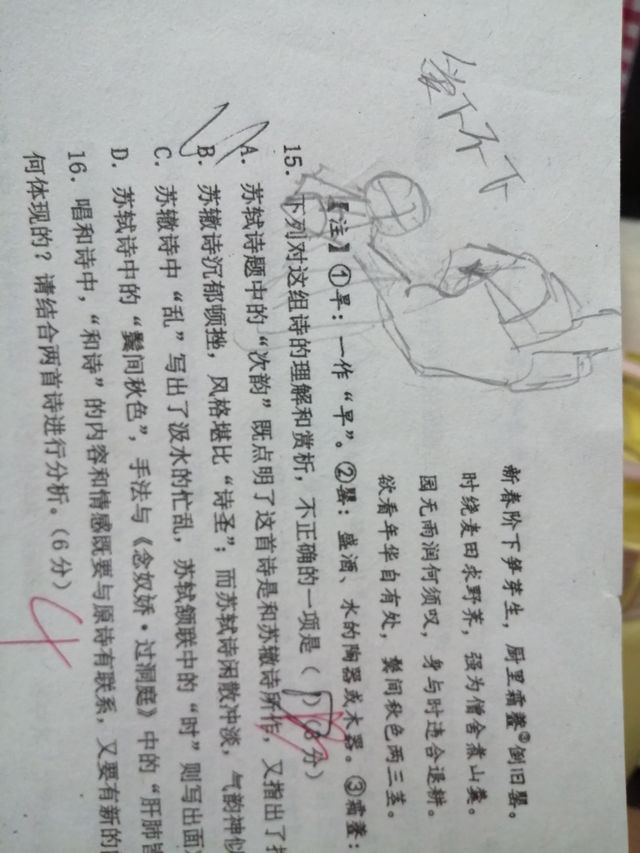 学下不下
新春阶下笋芽生，厨里霜虀③倒旧罂。
时绕麦田求野荠，强为僧舍煮山羹。
因无雨润何须叹，身与时违合退耕。
欲看年华自有处，鬓间秋色两三茎。
【注】①旱：一作“早”。②罂：盛酒、水的陶器或木器。③霜虀：
15. 下列对这组诗的理解和赏析，不正确的一项是（ ）（3分）
A. 苏轼诗题中的“次韵”既点明了这首诗是和苏辙诗所作，又指出了
B. 苏辙诗沉郁顿挫，风格堪比“诗圣”；而苏轼诗闲散冲淡，气韵神似
C. 苏辙诗中“乱”写出了汲水的忙乱，苏轼颔联中的“时”则写出面
D. 苏轼诗中的“鬓间秋色”，手法与《念奴娇·过洞庭》中的“肝肺皆
16. 唱和诗中，“和诗”的内容和情感既要与原诗有联系，又要有新的
何体现的？请结合两首诗进行分析。（6分）
4